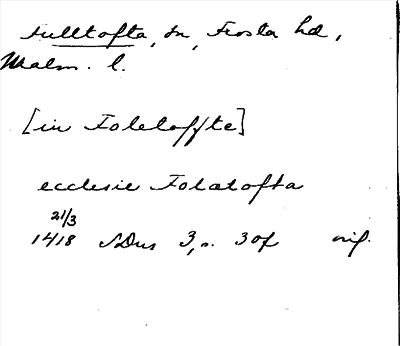 Fulltofta, sn, Frosta hd,
Malm. l.
[in Foletoffte]
ecclesie Folætofta
21/3
1418 SDns 3, s. 307 orig.